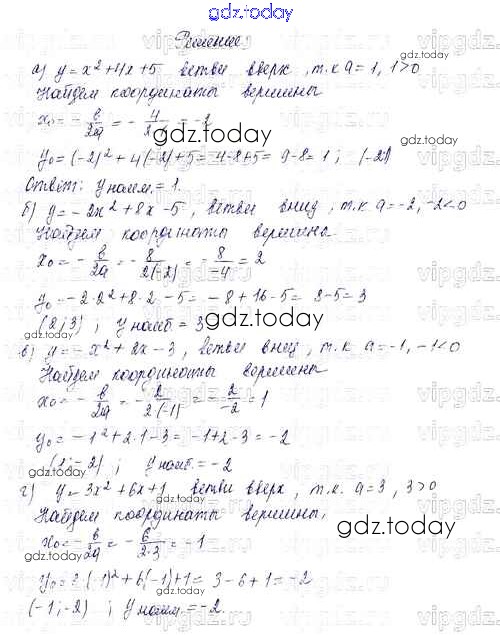 gdz.today
Решение:
а) y = x² + 4x + 5 ветви вверх, т.к a = 1, 1>0
Найдем координаты вершины
x₀ = - в/2a = - 4/2 = -2
y₀ = (-2)² + 4(-2) + 5 = 4-8+5 = 9-8 = 1; (-2;1)
Ответ: y наим. = 1.
б) y = -2x² + 8x - 5, ветви вниз, т.к a = -2, -2<0
Найдем координаты вершины
x₀ = - в/2a = - 8/2(-2) = - 8/-4 = 2
y₀ = -2·2² + 8·2 - 5 = -8 + 16 - 5 = 8-5 = 3
(2;3); y наиб. = 3
в) y = -x² + 2x - 3, ветви вниз, т.к a = -1, -1<0
Найдем координаты вершины
x₀ = - в/2a = - 2/2(-1) = - 2/-2 = 1
y₀ = -1² + 2·1 - 3 = -1+2-3 = -2
; y наиб. = -2
г) y = 3x² + 6x + 1 ветви вверх, т.к. a = 3, 3>0
Найдем координаты вершины,
x₀ = - в/2a = - 6/2·3 = -1
y₀ = 3(-1)² + 6(-1) + 1 = 3 - 6 + 1 = -2
(-1;-2); y наим = -2